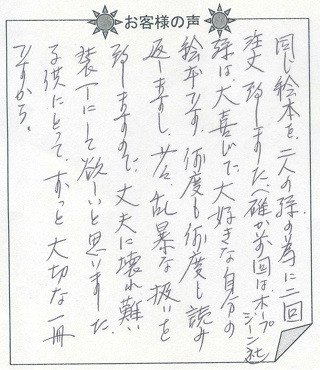 お客様の声
同じ絵本を、二人の孫の為に二回
注文致しました(確か前の回は、ホープジーン社)
孫は、大喜びで、大好きな自分の
絵本です。何度も何度も読み
返しますし、少々乱暴な扱いを
致しますので、丈夫に壊れ難い
装丁にして欲しいと思いました。
子供にとって、ずっと大切な一冊
ですから。